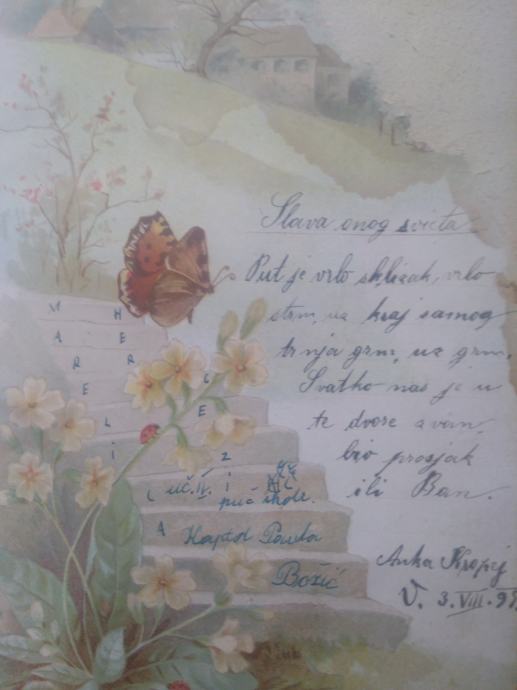 Slava onog svieta
Put je vrlo sklizak, vrlo
strm, uz kraj samog
trnja grm, uz grm.
Svatko nas je u
te dvore zvan
bio prosjak
ili Ban.
Anka
V. 3. VIII. 9
M A R E L I A
H E R C E Z I
( uč. IV.
puč. škole.
Kaptol
Božić